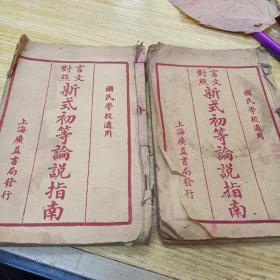 國民學校適用
言文對照
新式初等論說指南
上海廣益書局發行
國民學校適用
言文對照
新式初等論說指南
上海廣益書局發行